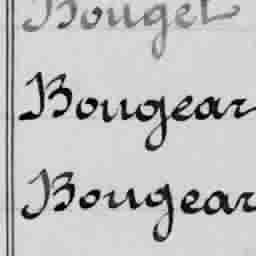 Bouget
Bougear
Bougear